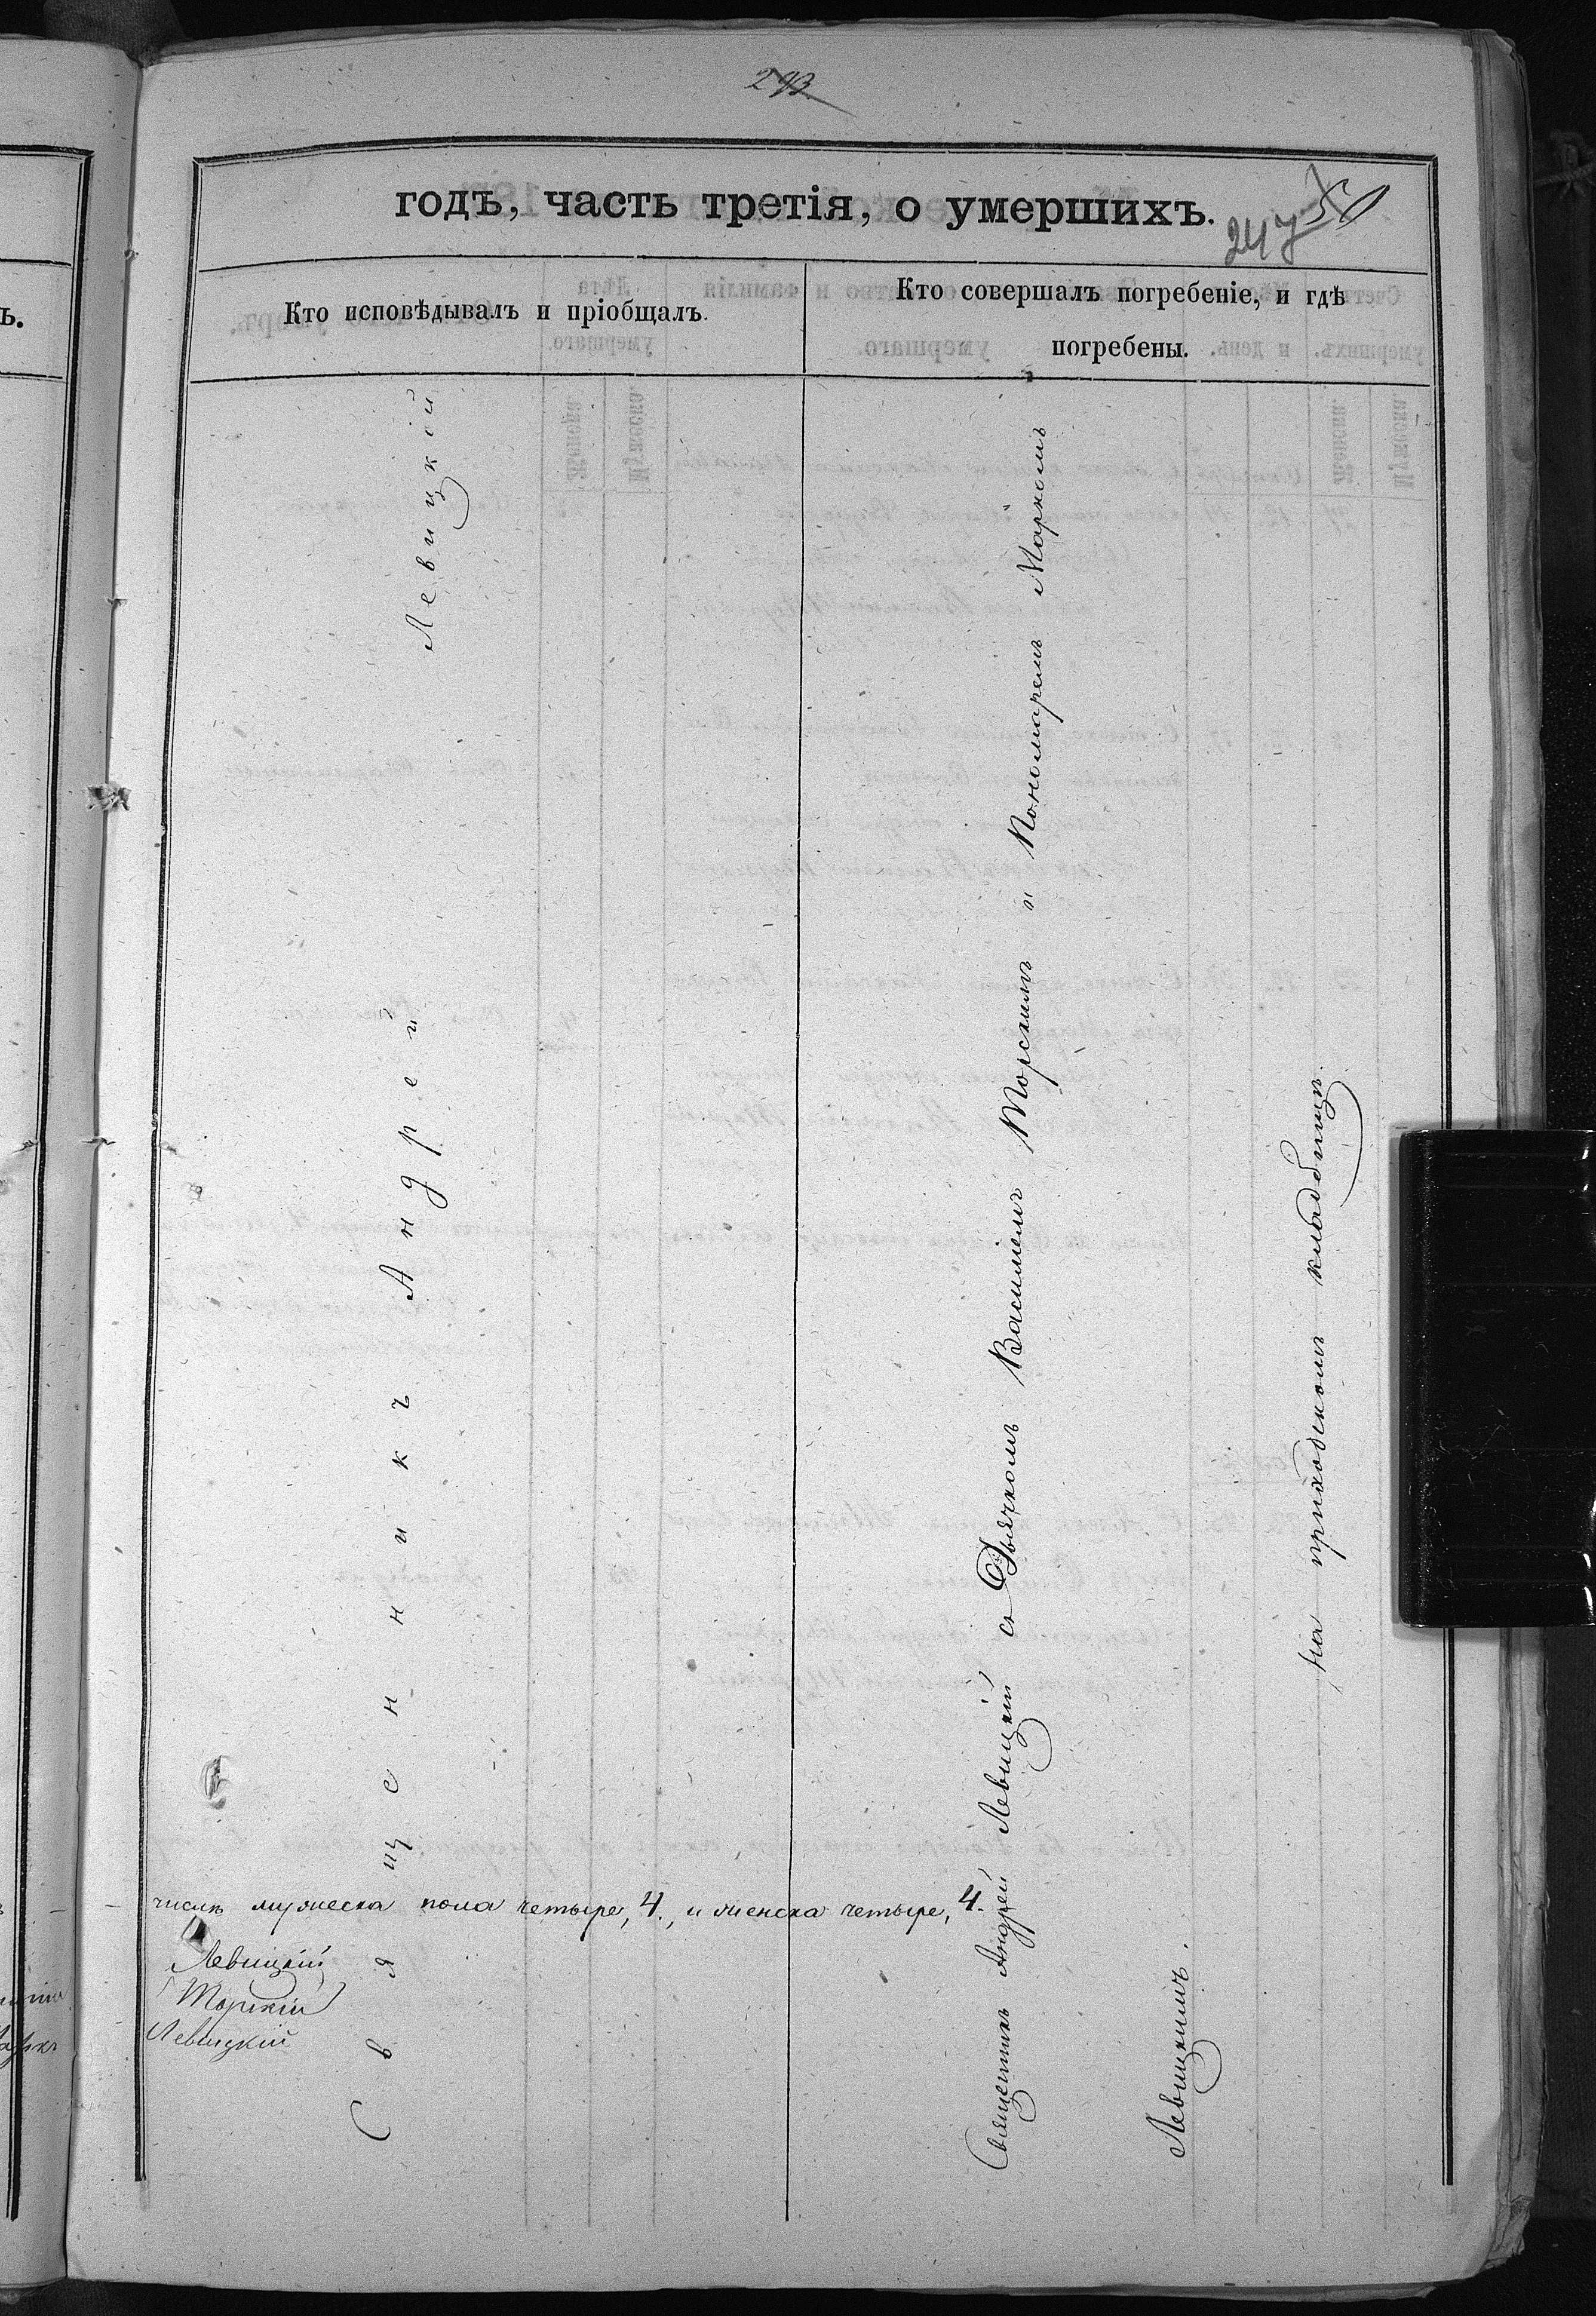 293
годъ, часть третія, о умершихъ.
50
247
Кто исповѣдывалъ и пріобщалъ.
Кто совершалъ погребеніе, и гдѣ
погребены.
Священникъ Андрей Левицкій
Священникъ Андрей Левицкій съ Дьячкомъ Василіемъ Торскимъ и Пономаремъ Маркомъ
Левицкимъ.
на приходскомъ кладбищѣ.
числѣ мужеска пола четыре, 4., и женска четыре, 4.
Левицкій
Торскій
Левицкій